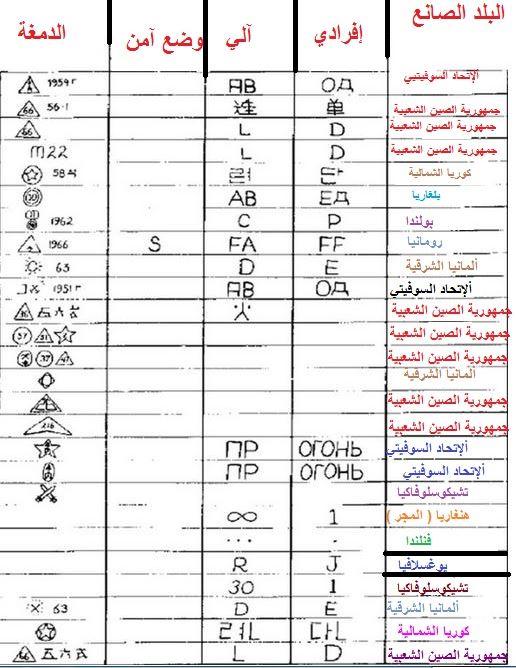 البلد الصانع إفرادي آلي وضع آمن الدمغة
ألإتحاد السوفيتي ОД АВ 1954 г
جمهورية الصين الشعبية 单 連 66 56-1
جمهورية الصين الشعبية D L 66
جمهورية الصين الشعبية D L M22
كوريا الشمالية 단 련 58식
بلغاريا ЕД АВ 10
بولندا P C 1962
رومانيا FF FA S 1966
ألمانيا الشرقية E D 63
ألإتحاد السوفيتي ОД АВ 1951 г
جمهورية الصين الشعبية 五 六
جمهورية الصين الشعبية 37
جمهورية الصين الشعبية 37
ألمانيا الشرقية
جمهورية الصين الشعبية
جمهورية الصين الشعبية 216
ألإتحاد السوفيتي ОГОНЬ ПР
ألإتحاد السوفيتي ОГОНЬ ПР
تشيكوسلوفاكيا
هنغاريا ( المجر ) 1 ∞
فنلندا . ...
يوغسلافيا J R
تشيكوسلوفاكيا 1 30
ألمانيا الشرقية E D 63
كوريا الشمالية 다ㄴ 려ㄴ
جمهورية الصين الشعبية D L 66 五 六 式